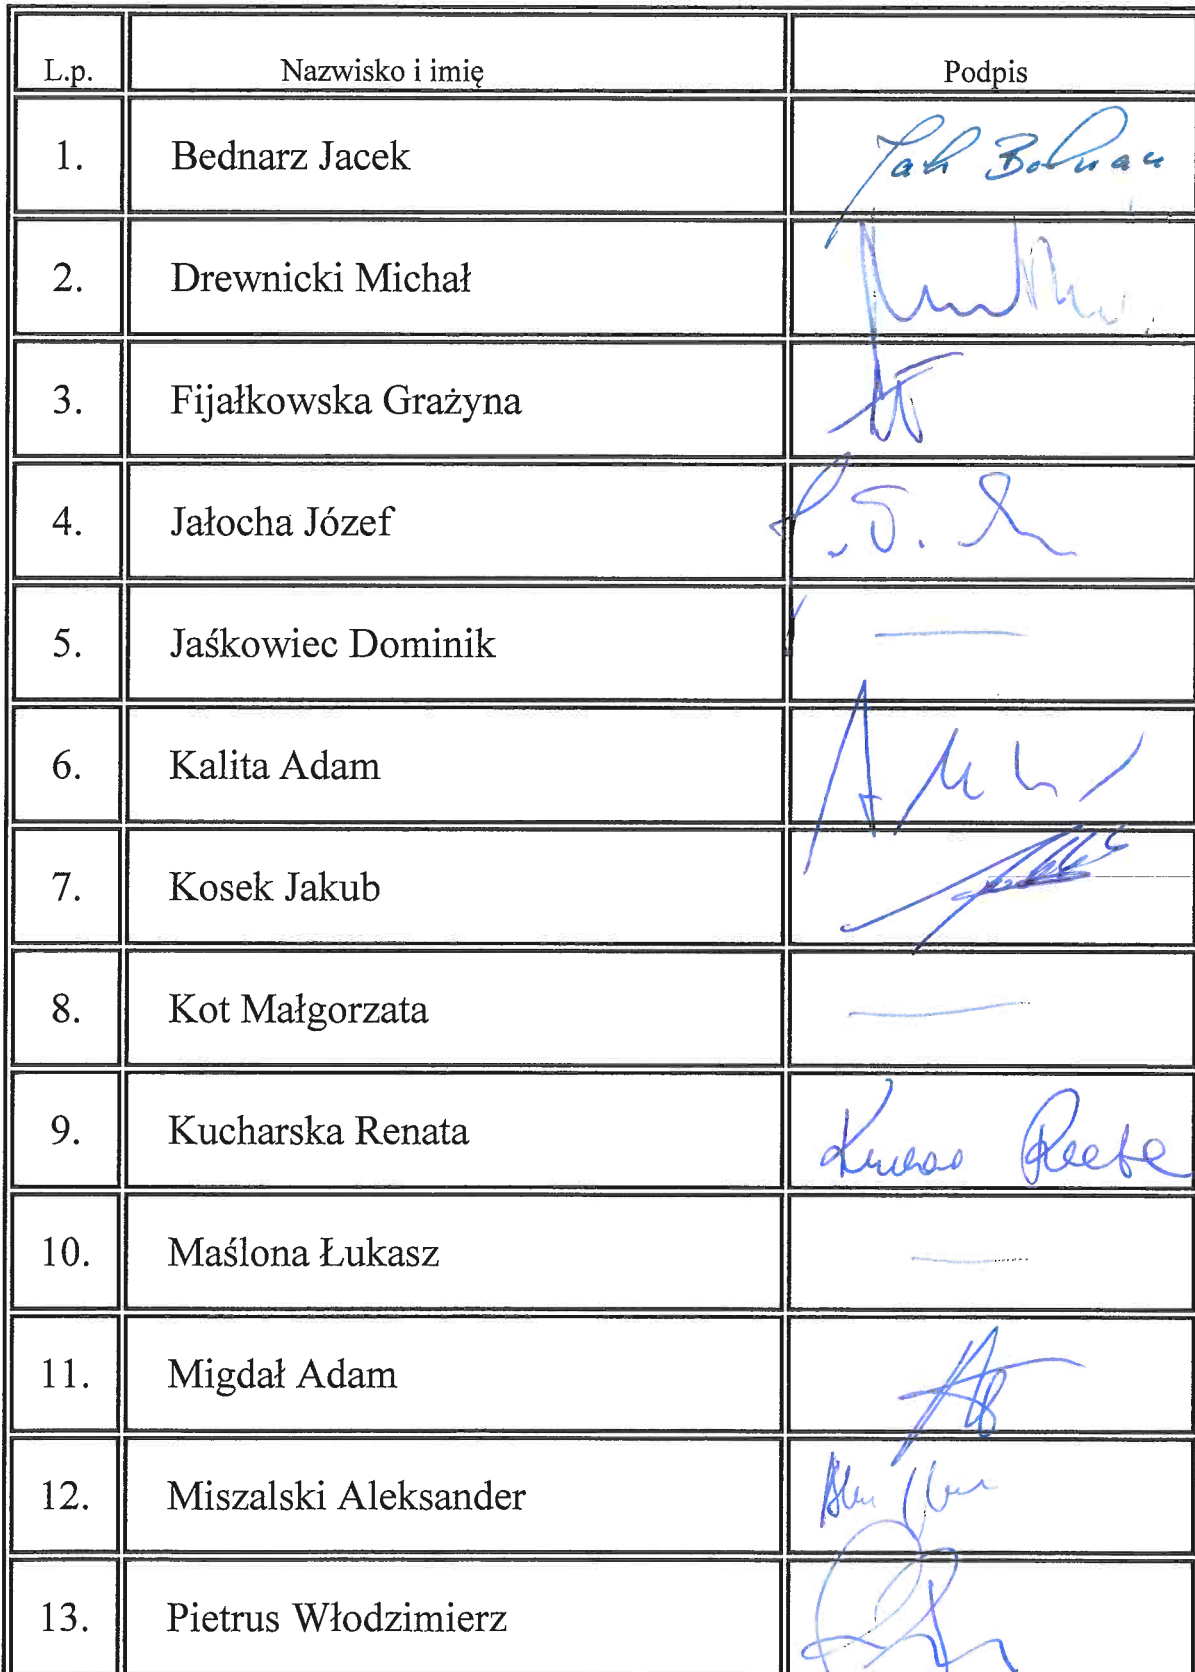 L.p. Nazwisko i imię Podpis
1. Bednarz Jacek
2. Drewnicki Michał
3. Fijałkowska Grażyna
4. Jałocha Józef
5. Jaśkowiec Dominik —
6. Kalita Adam
7. Kosek Jakub
8. Kot Małgorzata —
9. Kucharska Renata
10. Maślona Łukasz —
11. Migdał Adam
12. Miszalski Aleksander
13. Pietrus Włodzimierz